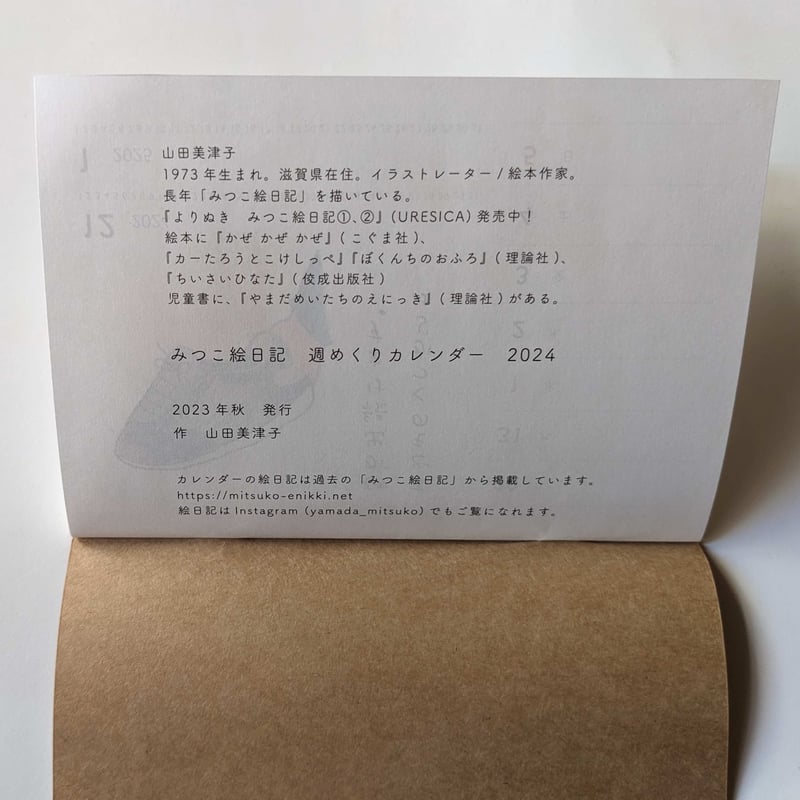 山田美津子
1973年生まれ。滋賀県在住。イラストレーター/絵本作家。
長年「みつこ絵日記」を描いている。
『よりぬき　みつこ絵日記①、②』(URESICA)発売中！
絵本に『かぜ かぜ かぜ』(こぐま社)、
『カーたろうとこけしっぺ』『ぼくんちのおふろ』(理論社)、
『ちいさいひなた』(佼成出版社)
児童書に、『やまだめいたちのえにっき』(理論社)がある。
みつこ絵日記　週めくりカレンダー　2024
2023年秋　発行
作　山田美津子
カレンダーの絵日記は過去の「みつこ絵日記」から掲載しています。
https://mitsuko-enikki.net
絵日記はInstagram(yamada_mitsuko)でもご覧になれます。